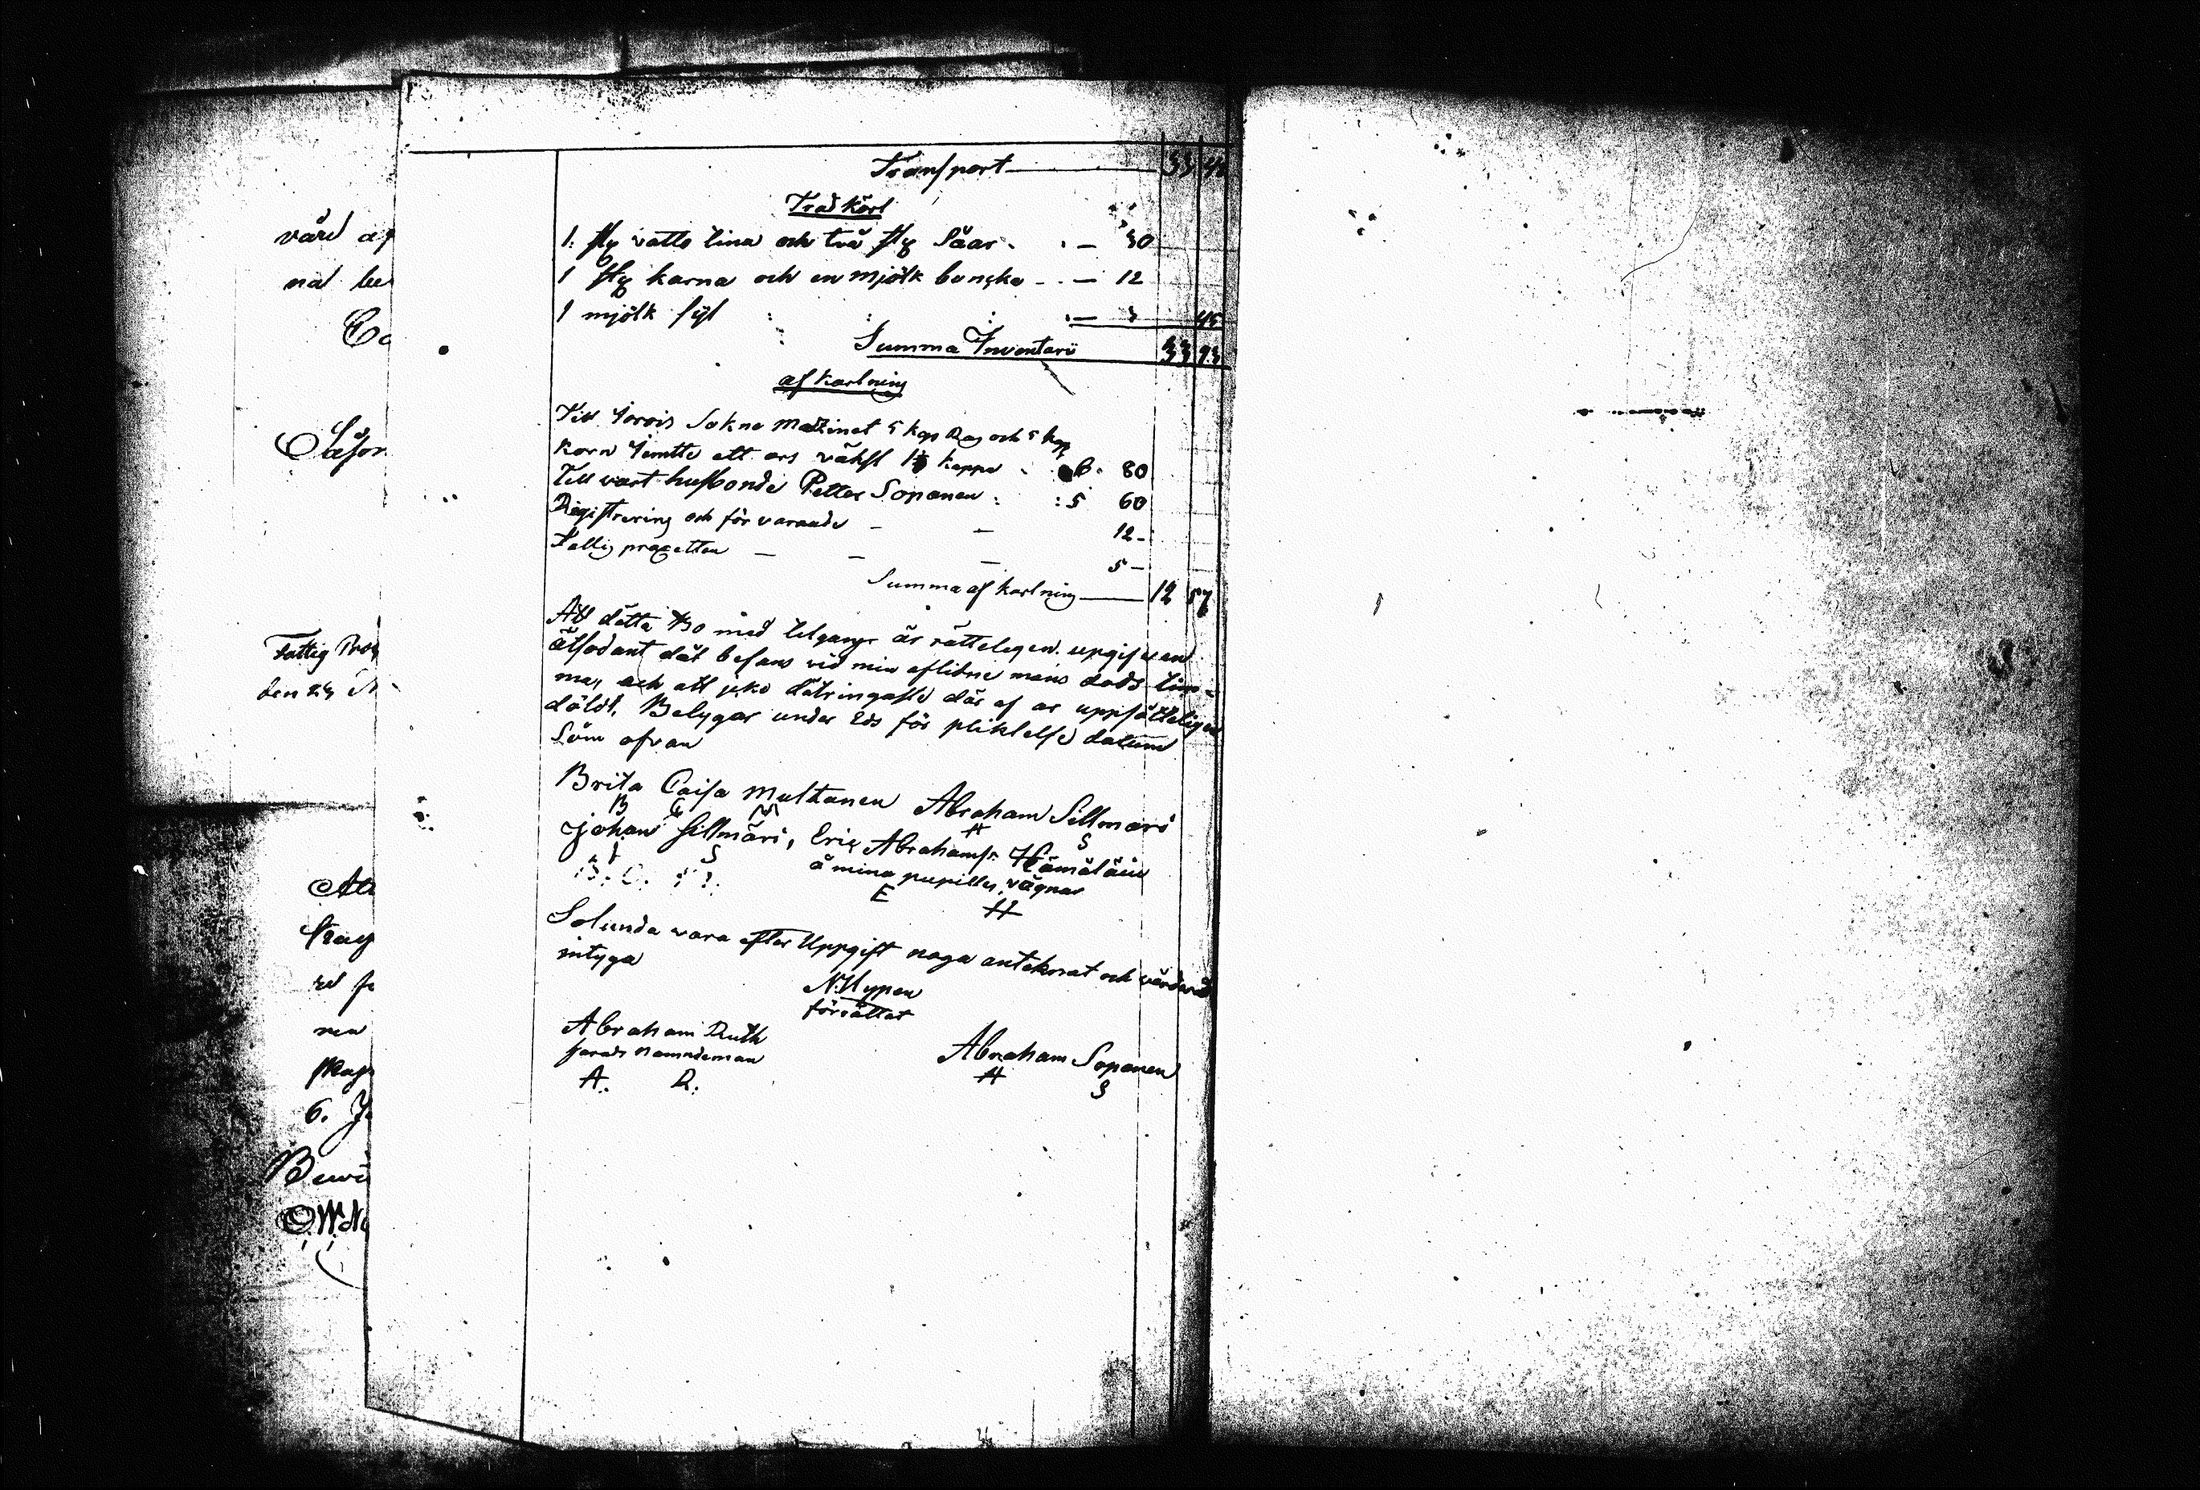 Transport 33 48
Träd kärl
1: styz vatts tina och två styz Såar . . — 30
1 styz karna och en mjölk buncka - . — 12
1 mjölk fyl : : : . — 3 45
Summa Inventarii 33 93
afkortning
Till Jorois Sokne Magzinet 5 kap Rag och 5 kap
korn Jemtte ett ors väkst kappe . 6. 80
Till vart husbonde Petter Soponen : : 5 60
Registrering och för varande — — 12 -
Fattig procetten — — — 5 —
Summa afkortning 12 57
Att dätta Bo med tilgangr är rättelegen upgifven
ätsodant dät befans vid min aflidne mans döds tim=
ma, och att icke dätringaste där af är uppsåtteligen
döldt. Betygar under Eds för pliktelse datum
Söm ofvan
Brita Caisa Multanen Abraham Sillmari
B C M A S
Johan Sillmäri, Eric Abrahamss. Hämäläin
J S å mina pupillers vägnar
E H
Solunda vara efter Uppgift noga anteknat och värderat
intyga
N. Hypen
författat
Abraham Ruth
harads namndeman
Abraham Soponen
A. R. A S
vård af
nal be
Co
Låfor
Fattig Pro
den 24
Att
6. J
Bewi
O.W.No